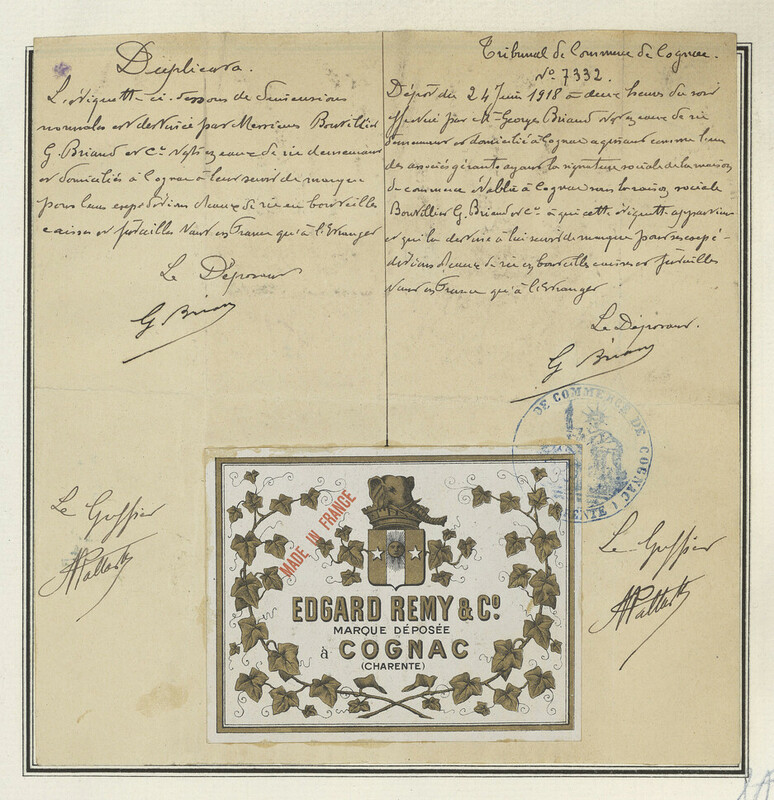 Duplicata.
L'étiquette ci-dessous de dimensions
normales est destinée par Messieurs Boutillier
G. Briand et Cie négts eaux de vie demeurant
et domiciliés à Cognac à leur servir de marque
pour leurs expéditions d'eaux de vie en bouteilles
caisses et futailles tant en France qu'à l'Etranger
Le Déposant
G Briand
Le Greffier
Tribunal de Commerce de Cognac.
No 7332.
Dépôt du 24 Juin 1918 à deux heures du soir
effectué par Mr Georges Briand négt eaux de vie
demeurant et domicilié à Cognac agissant comme l'un
des associés gérants ayant la signature sociale de la maison
de commerce établie à Cognac sous la raison sociale
Boutillier G. Briand et Cie à qui cette étiquette appartient
et qui la destine à lui servir de marque pour ses expé-
ditions d'eaux de vie en bouteilles caisses et futailles
tant en France qu'à l'Etranger
Le Déposant.
G Briand
DE COMMERCE DE COGNAC
Le Greffier
MADE IN FRANCE
EDGARD REMY & Co.
MARQUE DÉPOSÉE
à COGNAC
(CHARENTE)